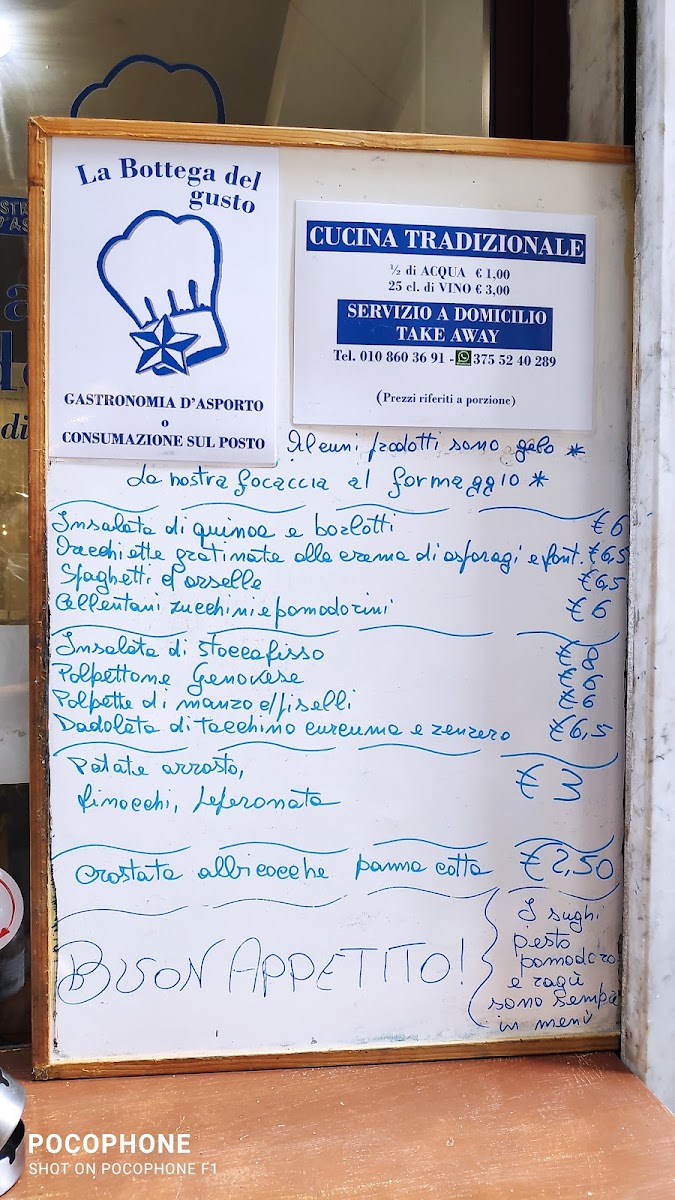 La Bottega del
gusto
GASTRONOMIA D'ASPORTO
o
CONSUMAZIONE SUL POSTO
CUCINA TRADIZIONALE
½ di ACQUA € 1,00
25 cl. di VINO € 3,00
SERVIZIO A DOMICILIO
TAKE AWAY
Tel. 010 860 36 91 - 375 52 40 289
(Prezzi riferiti a porzione)
Alcuni prodotti sono gelo *
la nostra focaccia al formaggio *
Insalata di quinoa e borlotti €6
Orecchiette gratinate alla crema di asparagi e font. €6,5
Spaghetti c/ arselle €6,5
Cellentani zucchini e pomodorini €6
Insalata di stoccafisso €8
Polpettone Genovese €6
Polpette di manzo c/piselli €6
Dadolata di tacchino curcuma e zenzero €6,5
Patate arrosto,
finocchi, Peperonata €3
crostata albicocche panna cotta €2,50
BUON APPETITO!
I sughi
pesto
pomodoro
e ragù
sono sempre
in menù
POCOPHONE
SHOT ON POCOPHONE F1